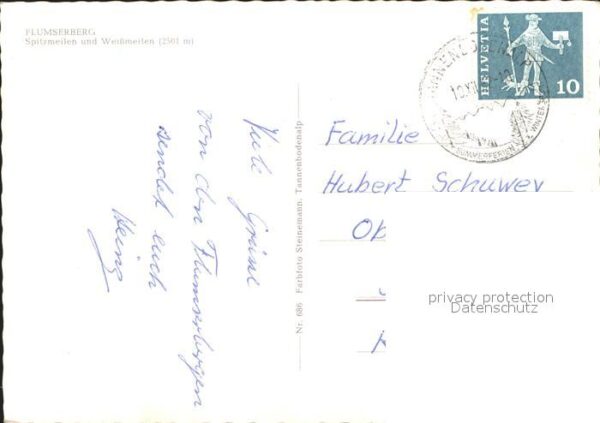 FLUMSERBERG
Spitzmeilen und Weißmeilen (2501 m)
Viele Grüße
von den Flumserbergen
sendet euch
Heinz
Nr. 686 Farbfoto Steinemann, Tannenbodenalp
HELVETIA
10
SOMMERFERIEN
Familie
Hubert Schuwer
Ob
privacy protection
Datenschutz